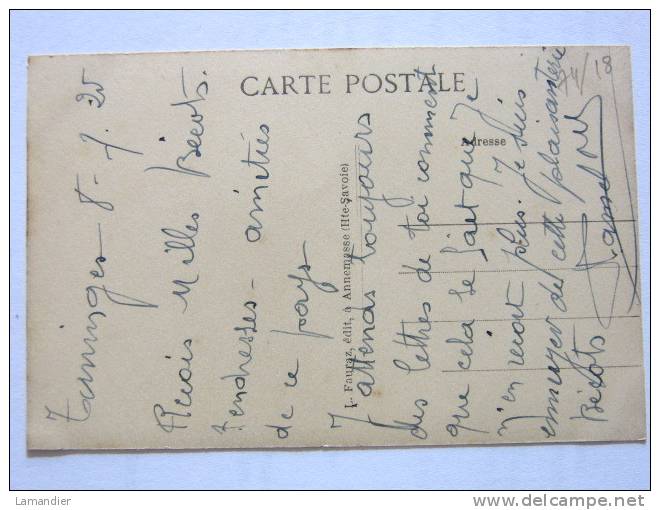 CARTE POSTALE
Adresse
L. Fauraz, édit, à Annemasse (Hte-Savoie)
Taninges 8-7.25
Reçois Milles Bécots.
Tendresses - amitiés
de ce pays
J'attends toujours
des lettres de toi comment
que cela se fait que je
n'en recoit plus. Je suis
ennuyer de cette plaisanterie
Bécots
14/18
Lamandier
delcampe.net